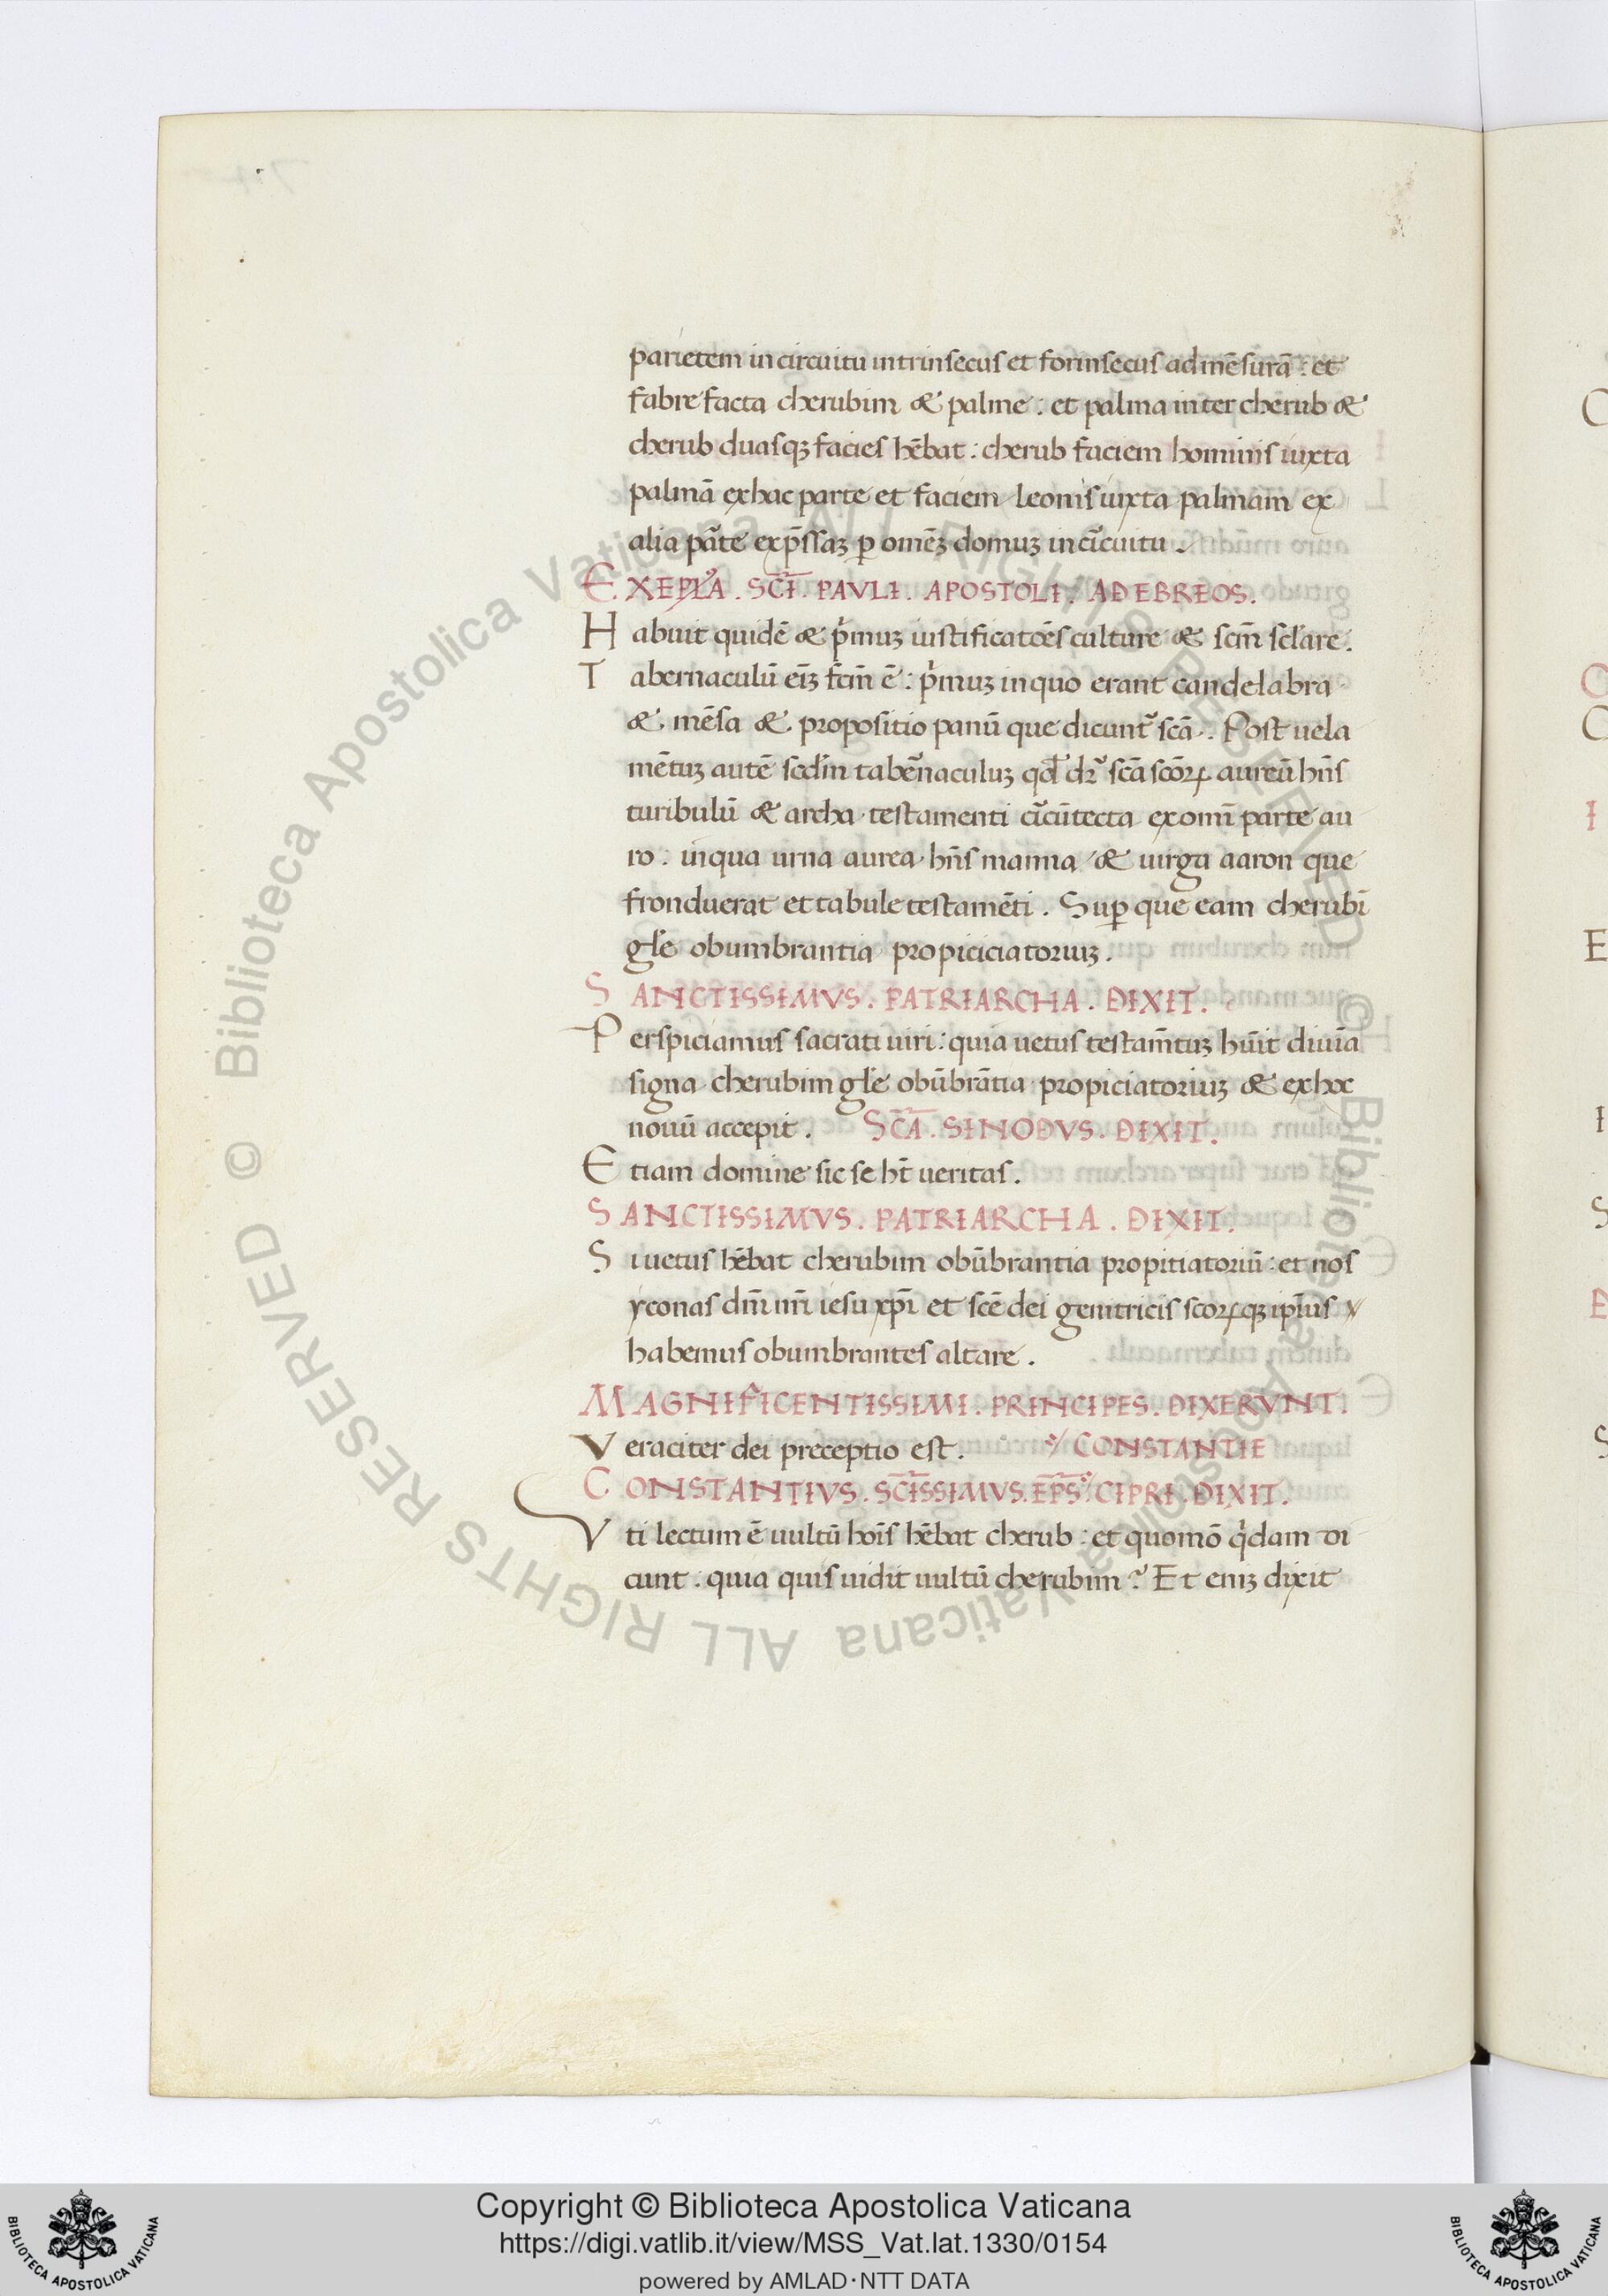 parietem in circuitu intrinsecus et forinsecus ad mēsurā : et
fabrefacta cherubim & palme : et palma inter cherub &
cherub duasqꝫ facies hēbat : cherub faciem hominis iuxta
palmā ex hac parte et faciem leonis iuxta palmam ex
alia ꝑte exp̄ssaꝫ ꝑ omēꝫ domuꝫ in circuitu .
EXEPLA . SCI . PAVLI . APOSTOLI . AD EBREOS .
Habuit quidē & pͥmuꝫ iustificatōes culture & scm̄ sclare .
Tabernaculū eīꝫ fcm̄ ē : pͥmuꝫ in quo erant candelabra
& mēsa & propositio panū que dicunt᷑ scā . Post uela
mētuꝫ autē scdm̄ tabernaculuꝫ qd̄ dr̄ scā scōꝝ aureū hn̄s
turibulū & archa testamenti circūtecta ex omī parte au
ro : in qua urna aurea hn̄s manna & uirga aaron que
fronduerat et tabule testamēti . Suꝑ que eam cherubī
gl̄e obumbrantia propiciciatoriuꝫ .
SANCTISSIMVS . PATRIARCHA . DIXIT .
Perspiciamus sacrati uiri : quia uetus testam̄tuꝫ hūit diuīa
signa cherubim gl̄e obūbrātia propiciatoriuꝫ & ex hoc
nouū accepit . SCA . SINODVS . DIXIT .
Etiam domine sic se ht̄ ueritas .
SANCTISSIMVS . PATRIARCHA . DIXIT .
Si uetus hēbat cherubim obūbrantia propitiatoriū : et nos
yconas dn̄i nr̄i iesu xp̄i et scē dei genitricis scoꝝqꝫ ipīus
habemus obumbrantes altare .
MAGNIFICENTISSIMI . PRINCIPES . DIXERVNT .
Veraciter dei preceptio est . CONSTANTIE
CONSTANTIVS . SCISSIMVS . EPS CIPRI . DIXIT .
Vti lectum ē uultū hoīs hēbat cherub : et quomō qͥdam di
cunt : quia quis uidit uultū cherubim ? Et eniꝫ dixit
© Biblioteca Apostolica Vaticana ALL RIGHTS RESERVED
© Biblioteca Apostolica Vaticana ALL RIGHTS RESERVED
Copyright © Biblioteca Apostolica Vaticana
https://digi.vatlib.it/view/MSS_Vat.lat.1330/0154
powered by AMLAD·NTT DATA
BIBLIOTECA APOSTOLICA VATICANA
BIBLIOTECA APOSTOLICA VATICANA